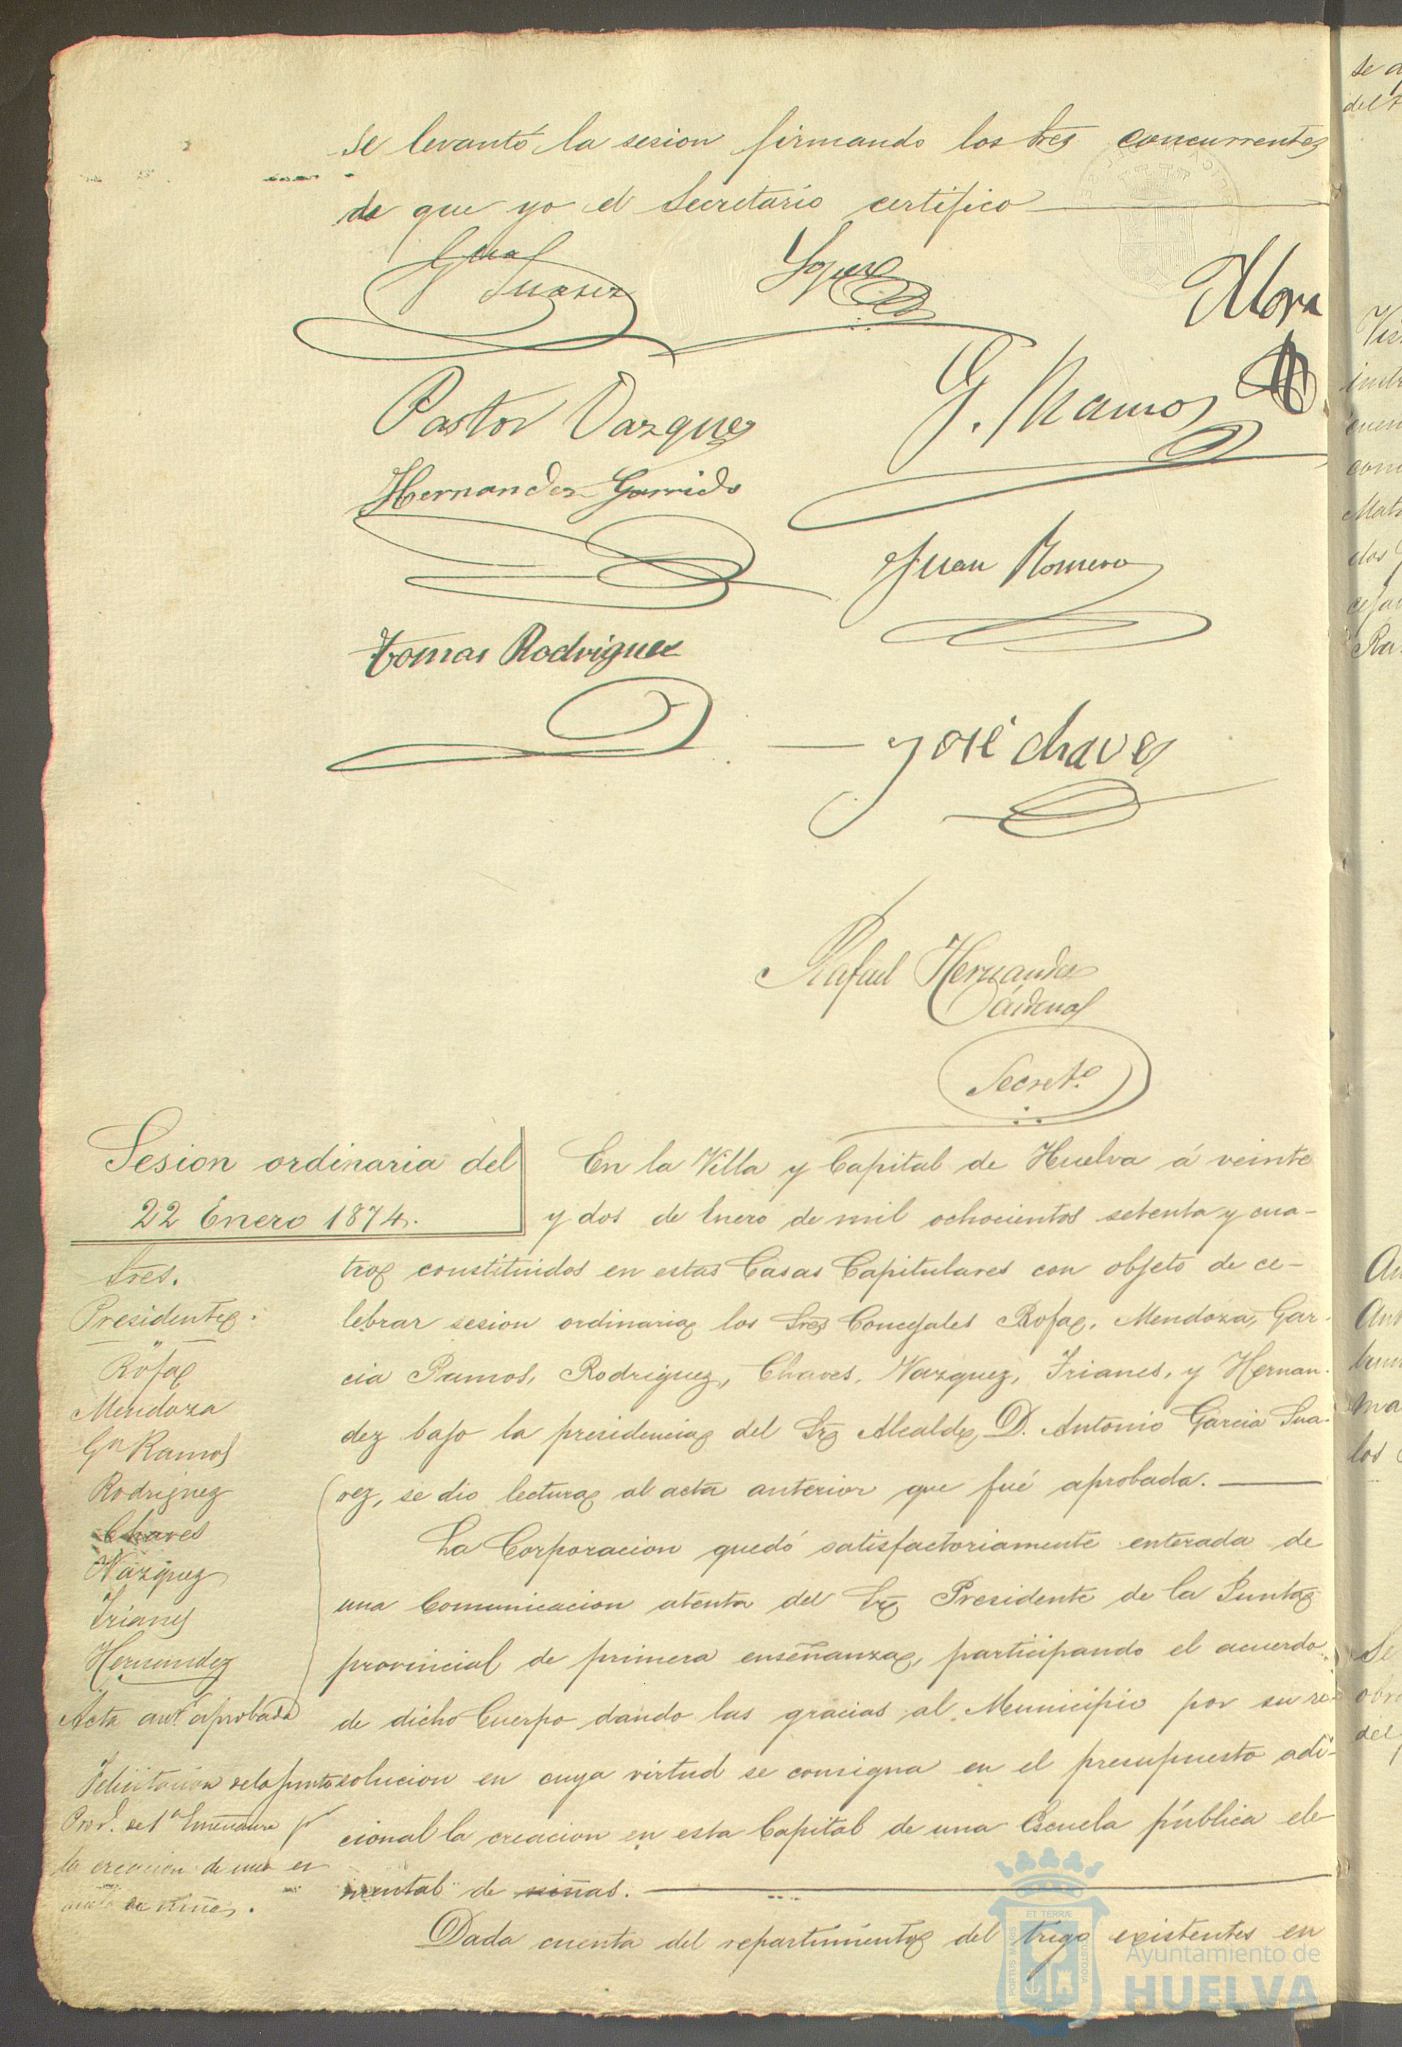 se levantó la sesion firmando los Sres concurrentes
de que yo el Secretario certifico
Gcia Suarez
Mora
G. Ramos
Pastor Vazquez
Hernandez Garrido
Juan Romero
Tomas Rodriguez
José Chaves
Rafael Hernandez
Cárdenas
Secret.o
Sesion ordinaria del
22 Enero 1874.
Sres.
Presidente.
Rofa
Mendoza
Gª Ramos
Rodriguez
Chaves
Vazquez
Trianes
Hernandez
Acta antr aprobada
Felicitacion de la junta
Prov.l de 1ª Enseñanza pr
la creacion de una es
cuela de niñas.
En la Villa y Capital de Huelva á veinte
y dos de Enero de mil ochocientos setenta y cua-
tro constituidos en estas Casas Capitulares con objeto de ce-
lebrar sesion ordinaria los Sres Concejales Rofa, Mendoza, Gar-
cia Ramos, Rodriguez, Chaves, Vazquez, Trianes, y Hernan-
dez bajo la presidencia del Sr Alcalde D. Antonio Garcia Sua-
rez, se dio lectura al acta anterior que fué aprobada.
La Corporacion quedó satisfactoriamente enterada de
una Comunicacion atenta del Sr Presidente de la Junta
provincial de primera enseñanza, participando el acuerdo
de dicho Cuerpo dando las gracias al Municipio por su re-
solucion en cuya virtud se consigna en el presupuesto adi-
cional la creacion en esta Capital de una Escuela pública ele
mental de niñas.
Dada cuenta del repartimiento del trigo existentes en
Ayuntamiento de
HUELVA